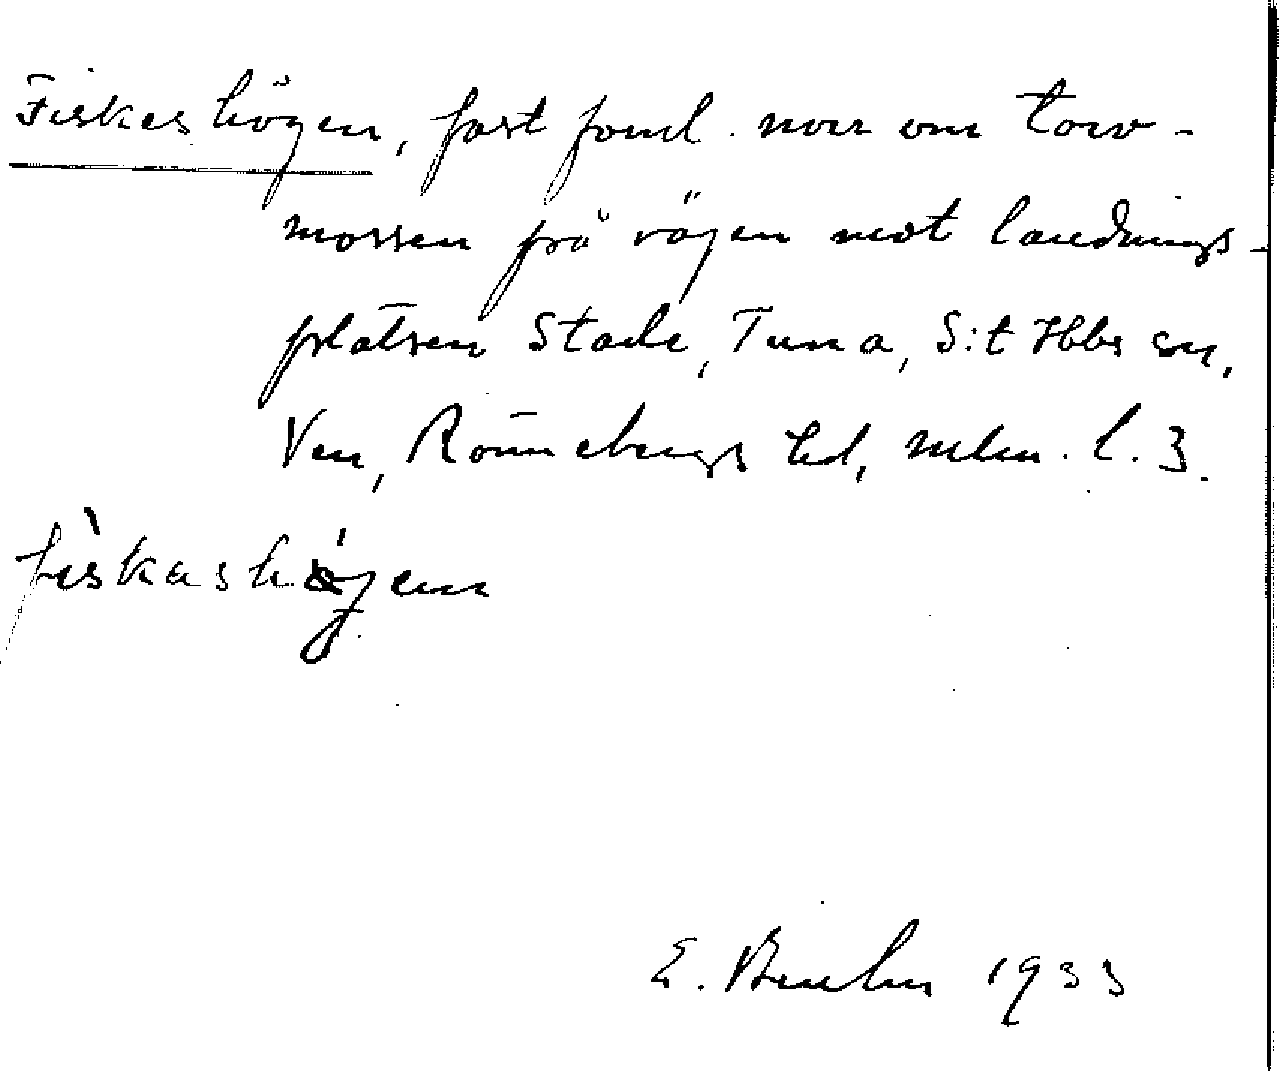 Fiskeshögen, fast forml. norr om torv-
mossen på vägen mot landnings-
platsen Stade, Tuna, S:t Ibbs sn,
Ven, Rönnebergs hd, mlm. l. 3.
fìskashǿgen
E. Bruhn 1933